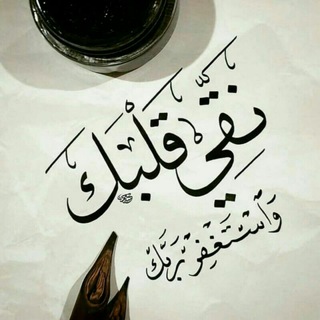 نقّي قلبك
واستغفر ربك